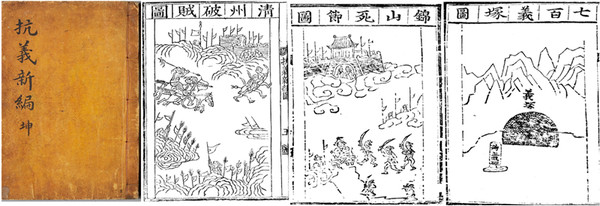 抗義新編 坤
清州破賊圖
錦山死節圖
七百義塚圖
義塚